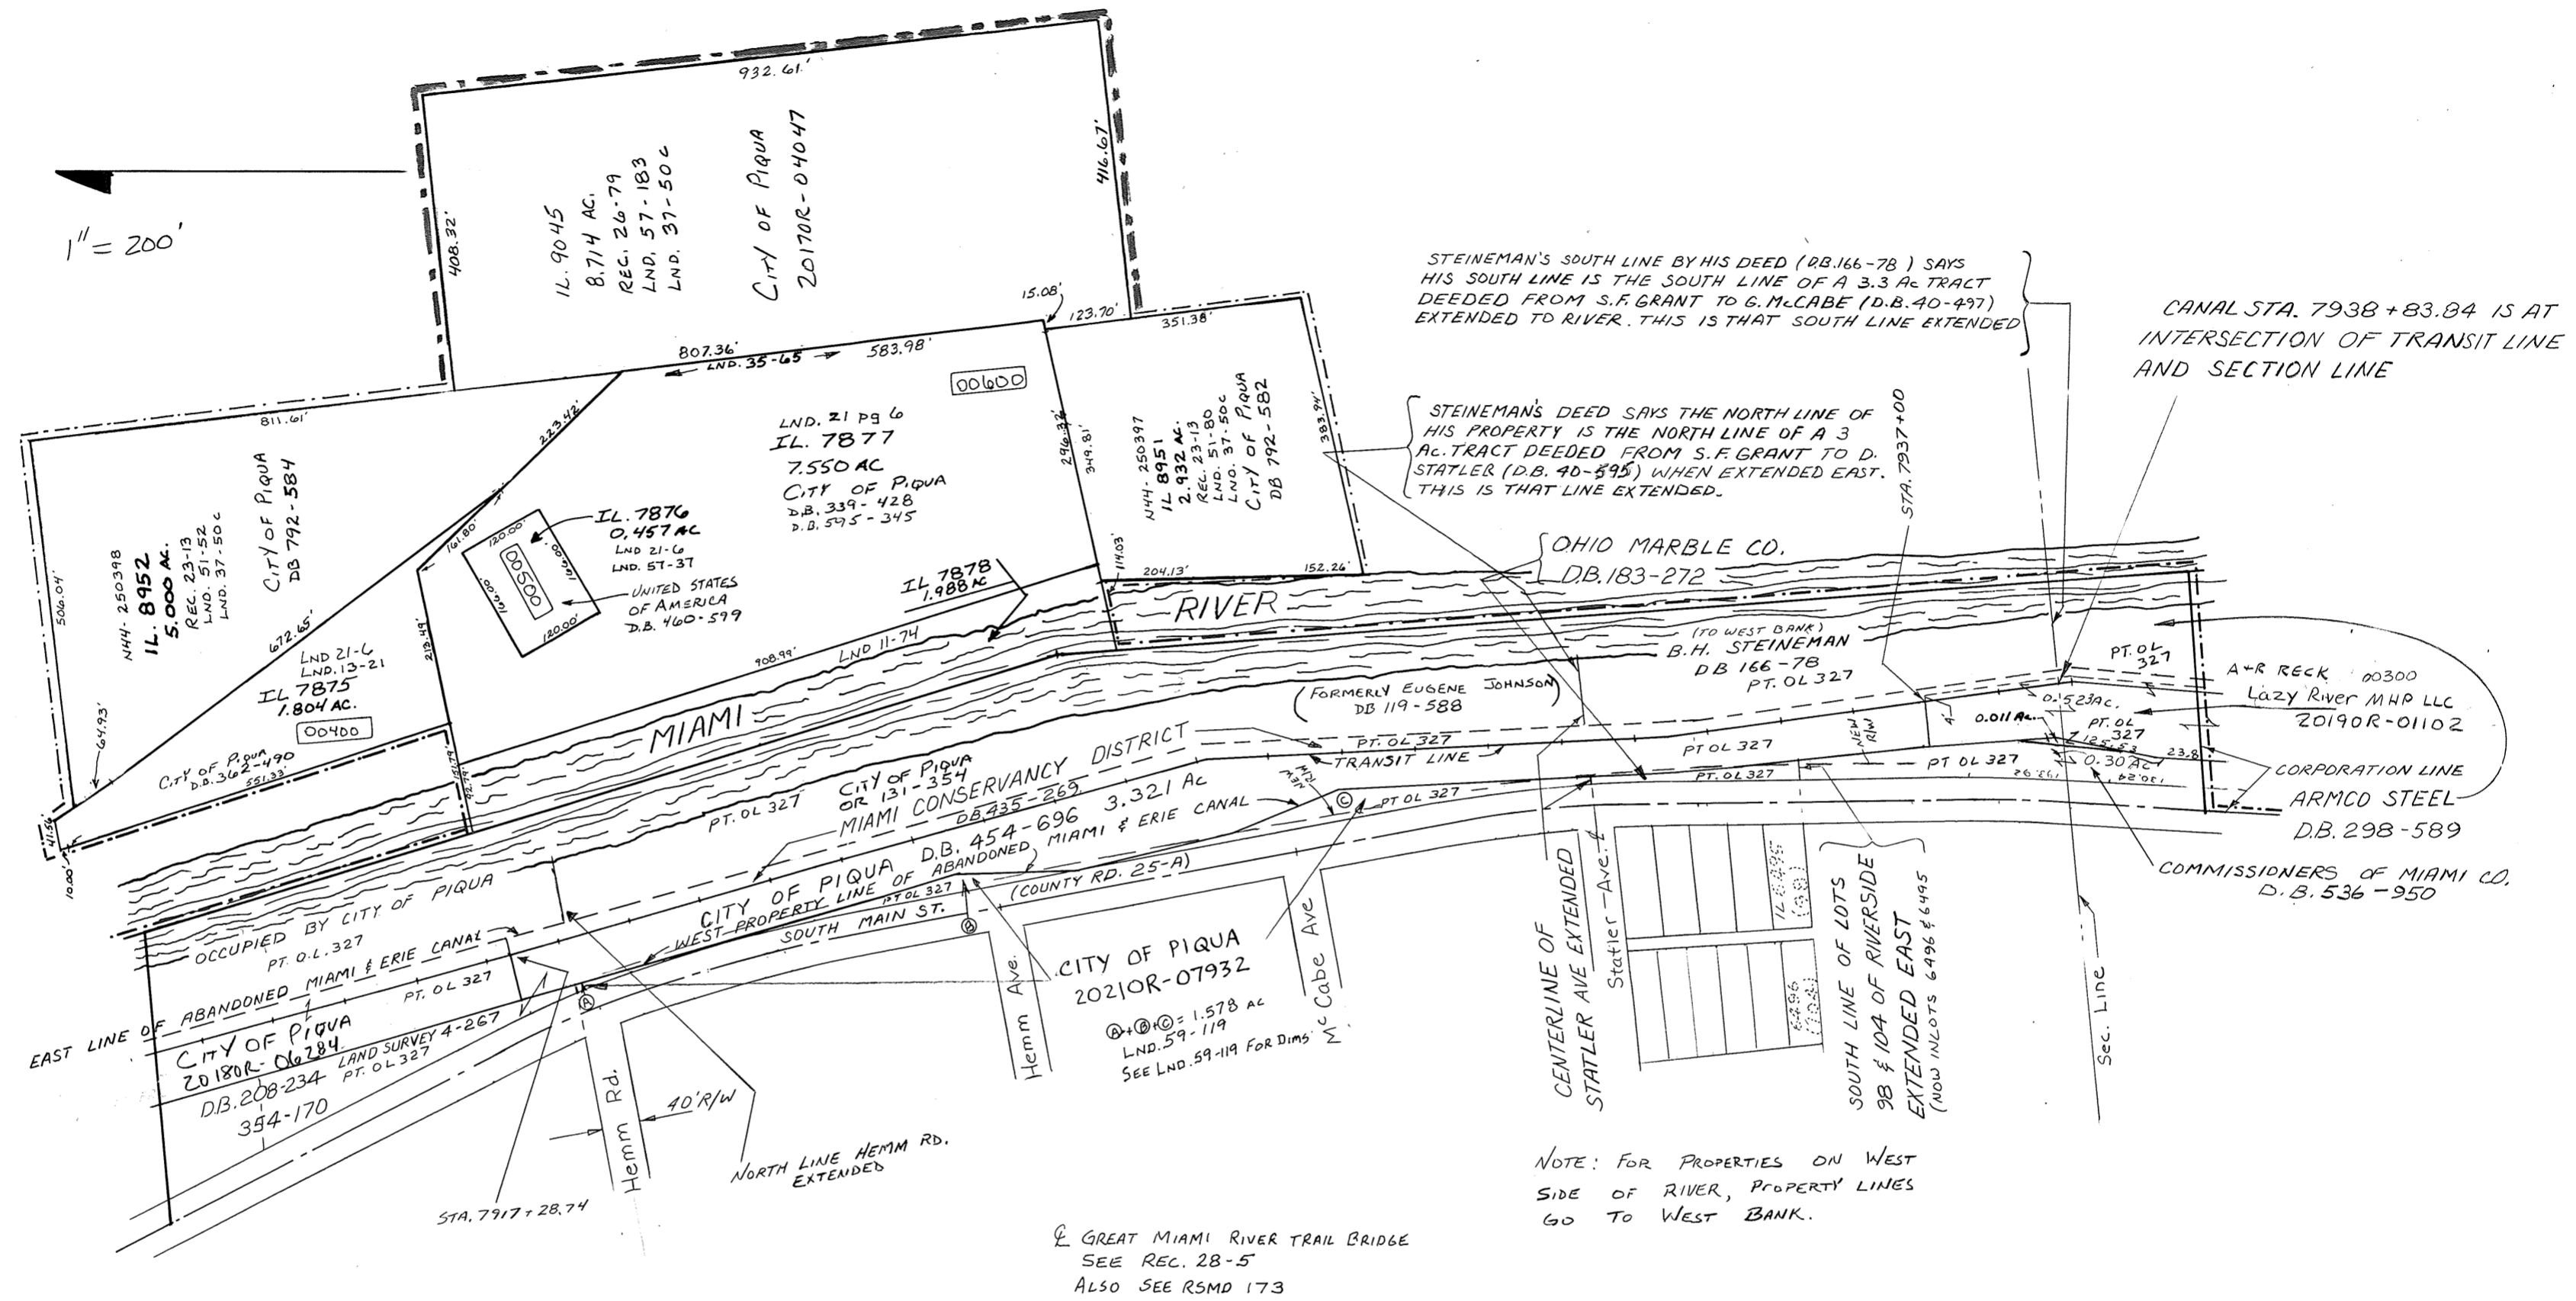 1" = 200'
932.61'
408.32'
416.67'
IL. 9045
8.714 AC.
REC. 26-79
LND. 57-183
LND. 37-50C
CITY OF PIQUA
2017OR-04047
15.08'
123.70'
351.38'
807.36'
LND. 35-65
583.98'
00600
811.61'
506.04'
N44-250398
IL. 8952
5.000 AC.
REC. 23-13
LND. 51-52
LND. 37-50C
CITY OF PIQUA
DB 792-584
223.42'
161.80'
672.65'
64.93'
41.56'
10.00'
LND 21-6
LND. 13-21
IL 7875
1.804 AC.
00400
CITY OF PIQUA
D.B. 362-490
551.33'
212.49'
LND. 21 pg 6
IL. 7877
7.550 AC
CITY OF PIQUA
D.B. 339-428
D.B. 595-345
120.00'
166.00'
166.00'
120.00'
00500
IL. 7876
0.457 AC
LND 21-6
LND. 57-37
UNITED STATES
OF AMERICA
D.B. 460-599
IL 7878
1.988 AC
908.99'
LND 11-74
349.81'
114.03'
204.13'
152.26'
383.94'
N44-250397
IL 8951
2.932 AC.
REC. 23-13
LND. 51-80
LND. 37-50C
CITY OF PIQUA
DB 792-582
STEINEMAN'S SOUTH LINE BY HIS DEED (D.B.166-78) SAYS
HIS SOUTH LINE IS THE SOUTH LINE OF A 3.3 Ac TRACT
DEEDED FROM S.F. GRANT TO G. McCABE (D.B. 40-497)
EXTENDED TO RIVER. THIS IS THAT SOUTH LINE EXTENDED
CANAL STA. 7938+83.84 IS AT
INTERSECTION OF TRANSIT LINE
AND SECTION LINE
STEINEMAN'S DEED SAYS THE NORTH LINE OF
HIS PROPERTY IS THE NORTH LINE OF A 3
Ac. TRACT DEEDED FROM S.F. GRANT TO D.
STATLER (D.B. 40-595) WHEN EXTENDED EAST.
THIS IS THAT LINE EXTENDED.
STA. 7937+00
OHIO MARBLE CO.
D.B. 183-272
MIAMI
RIVER
(TO WEST BANK)
B.H. STEINEMAN
DB 166-78
PT. OL 327
(FORMERLY EUGENE JOHNSON)
DB 119-588
PT. OL
327
A+R RECK 00300
Lazy River MHP LLC
2019OR-01102
0.523 AC.
0.011 AC.
PT. OL
327
125.53
23.8
0.30 AC
130.24
193.92
4'
NEW
R/W
CORPORATION LINE
ARMCO STEEL
D.B. 298-589
COMMISSIONERS OF MIAMI CO.
D.B. 536-950
PT. OL 327
TRANSIT LINE
PT OL 327
PT OL 327
PT. OL 327
PT OL 327
NEW
R/W
CITY OF PIQUA
OR 131-354
PT. OL 327
MIAMI CONSERVANCY DISTRICT
DB. 435-269
CITY OF PIQUA D.B. 454-696 3.321 Ac
WEST PROPERTY LINE OF ABANDONED MIAMI & ERIE CANAL
PT OL 327
SOUTH MAIN ST.
(COUNTY RD. 25-A)
A
B
C
OCCUPIED BY CITY OF PIQUA
PT. O.L. 327
EAST LINE OF ABANDONED MIAMI & ERIE CANAL
PT. OL 327
CITY OF PIQUA
2018OR-06284
LAND SURVEY 4-267
D.B. 208-234
PT. OL 327
354-170
STA. 7917+28.74
Hemm Rd.
40' R/W
NORTH LINE HEMM RD.
EXTENDED
Hemm Ave.
CITY OF PIQUA
2021OR-07932
A+B+C = 1.578 AC
LND. 59-119
SEE LND. 59-119 FOR DIMS
McCabe Ave
CENTERLINE OF
STATLER AVE EXTENDED
Statler Ave. ℄
IL 6495
(98)
6496
(104)
SOUTH LINE OF LOTS
98 & 104 OF RIVERSIDE
EXTENDED EAST
(NOW INLOTS 6496 & 6495)
Sec. Line
NOTE: FOR PROPERTIES ON WEST
SIDE OF RIVER, PROPERTY LINES
GO TO WEST BANK.
℄ GREAT MIAMI RIVER TRAIL BRIDGE
SEE REC. 28-5
ALSO SEE RSMD 173